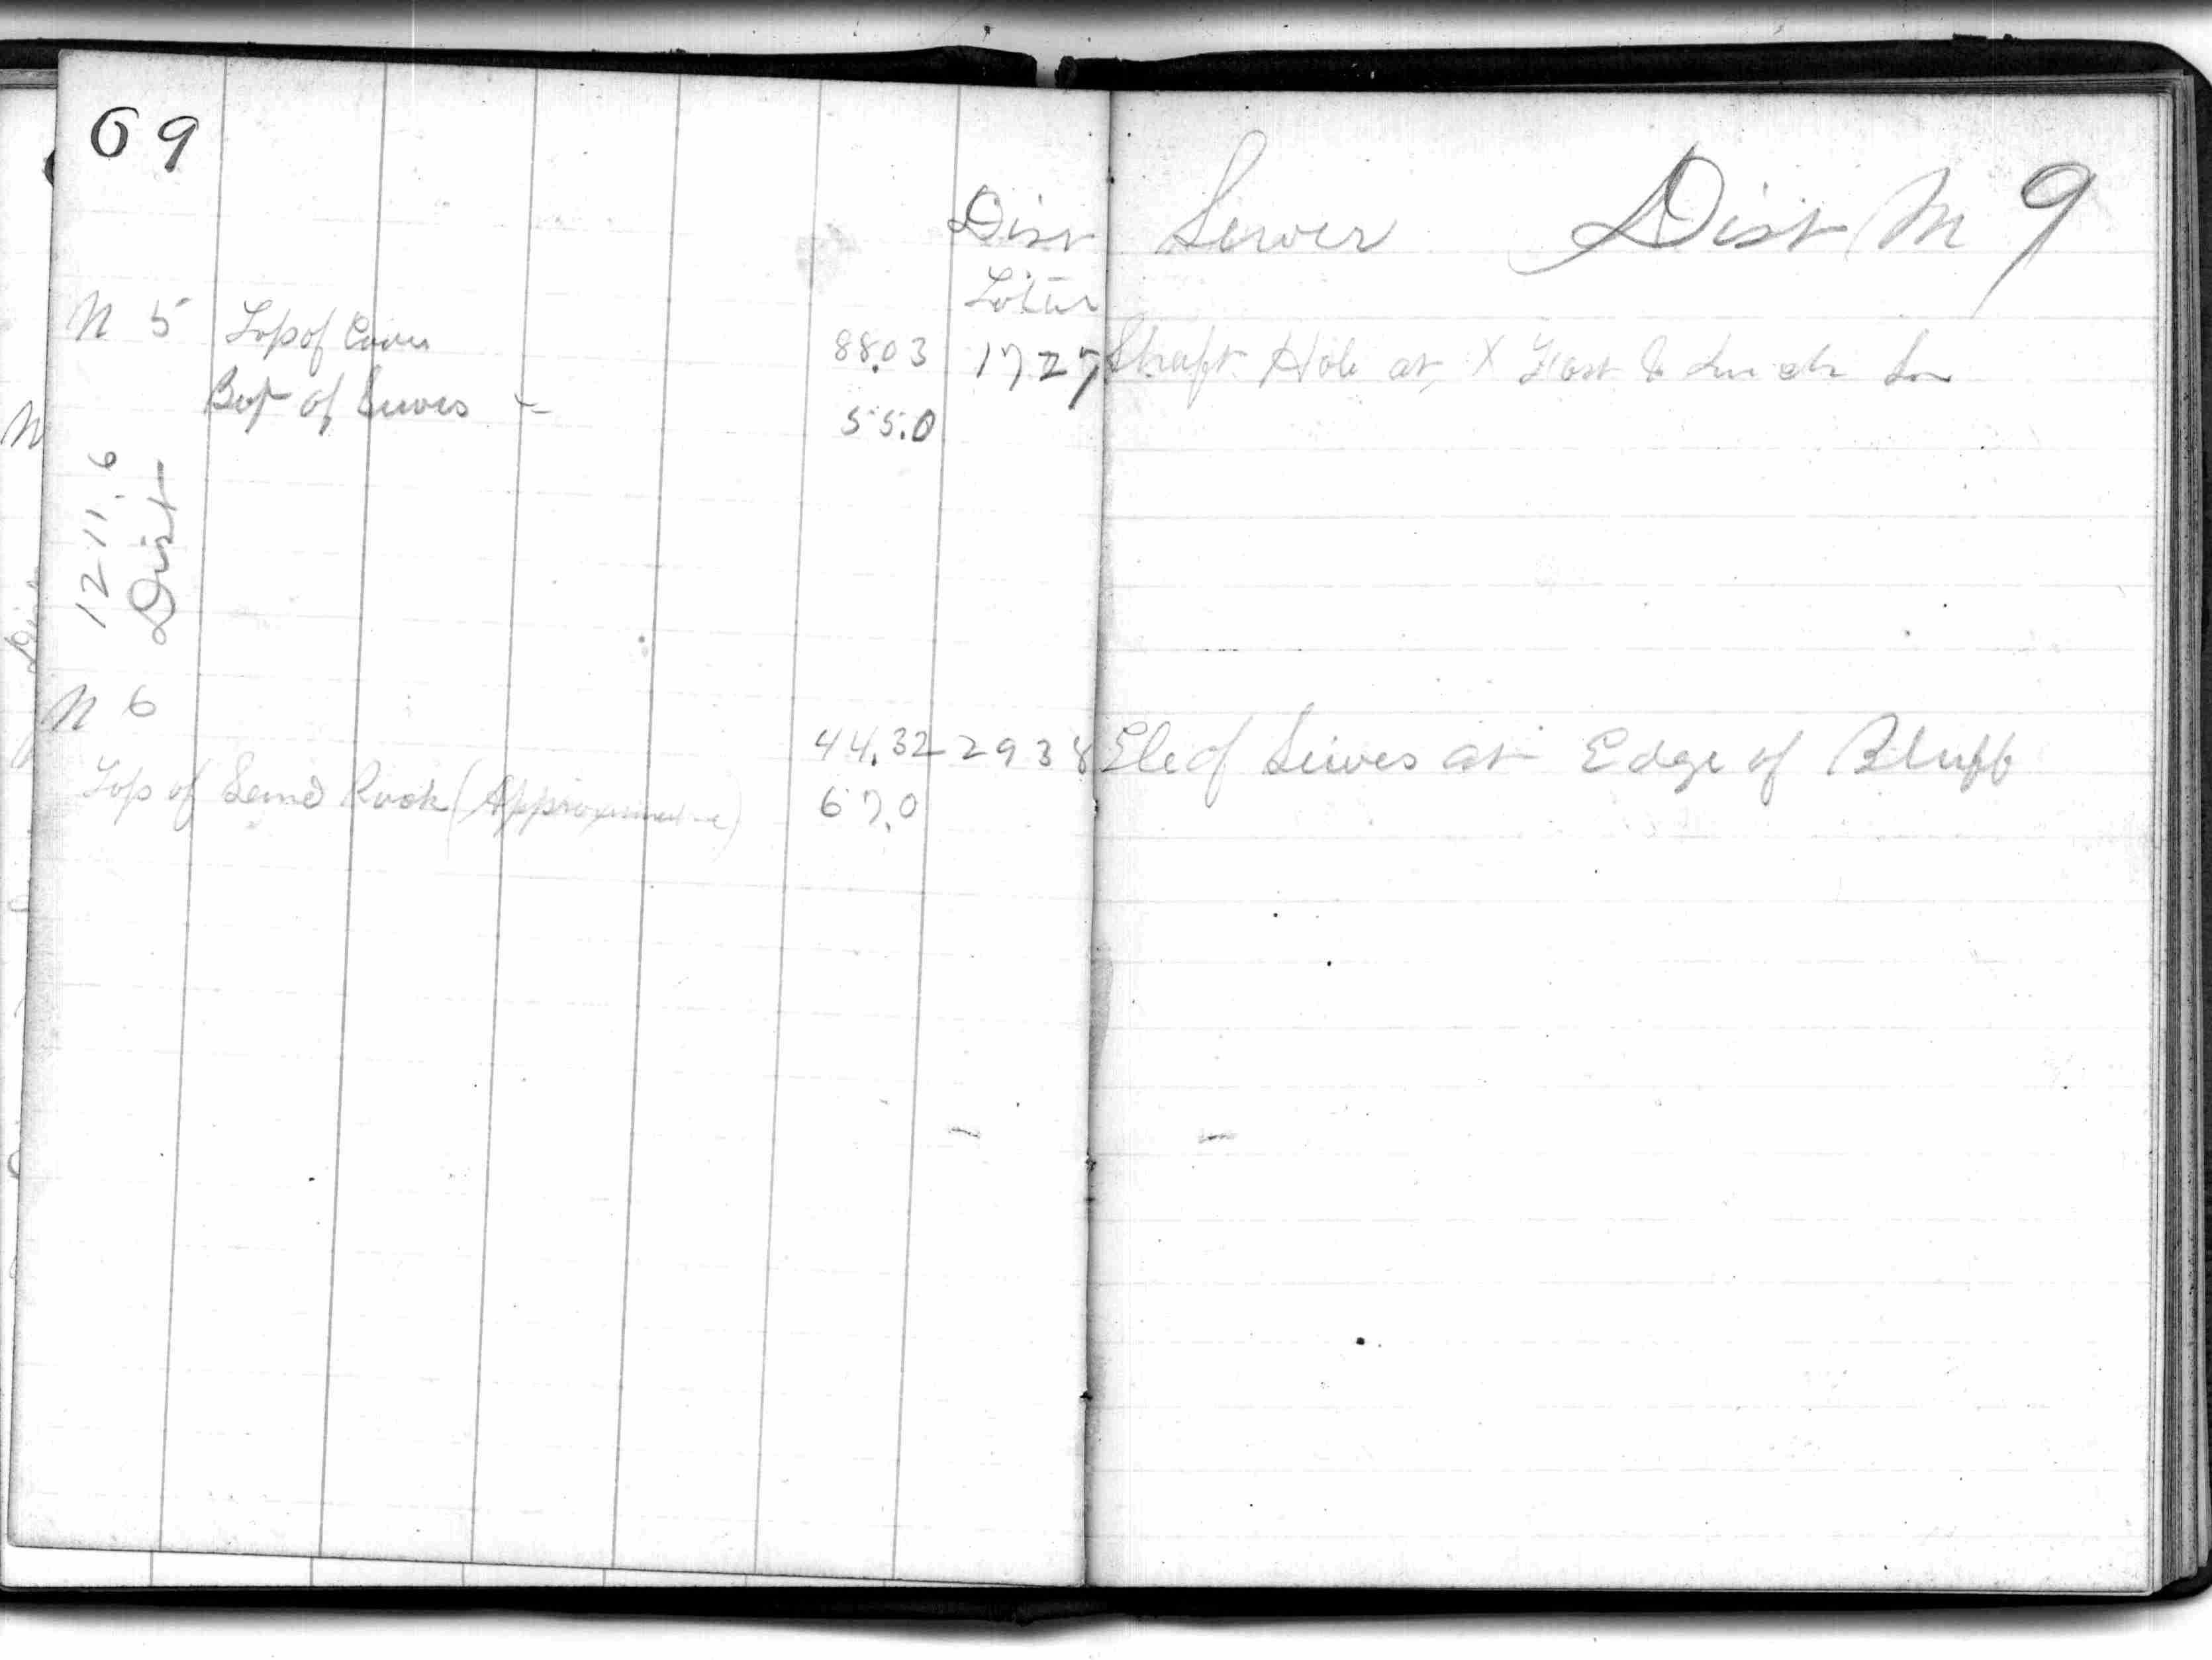 69
Dist Sewer Dist M 9
Total
N 5 Top of Cover 88.03 1727 Shaft Hole at X East &
Bot of Sewer 55.0
1211.6
Dist
N 6
44.32 2938 Ele of Sewer at Edge of Bluff
Top of Sand Rock (Approximate) 67.0